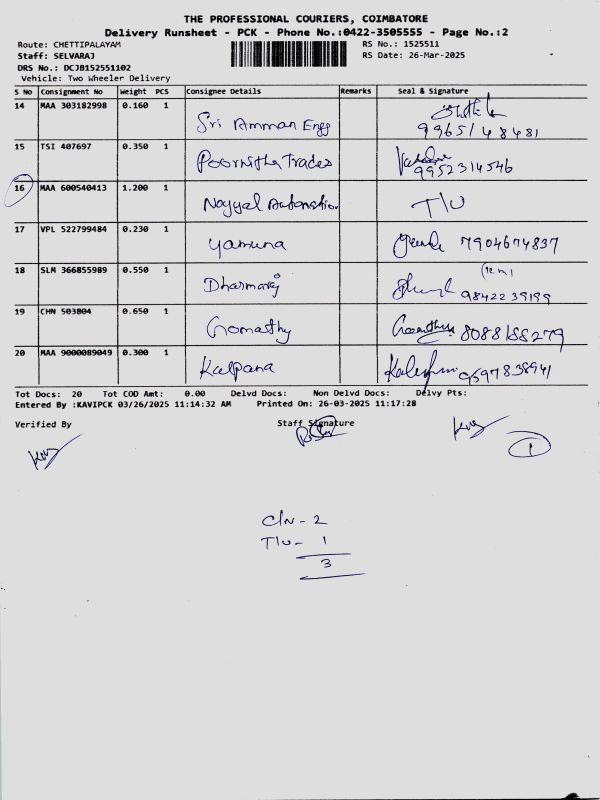 THE PROFESSIONAL COURIERS, COIMBATORE
Delivery Runsheet - PCK - Phone No.:0422-3505555 - Page No.:2
Route: CHETTIPALAYAM RS No.: 1525511
Staff: SELVARAJ RS Date: 26-Mar-2025
DRS No.: DCJB152551102
Vehicle: Two Wheeler Delivery
S No Consignment No Weight PCS Consignee Details Remarks Seal & Signature
14 MAA 303182998 0.160 1 Sri Amman Engg 9965148481
15 TSI 407697 0.350 1 Poornitha Trades 9952314546
16 MAA 600540413 1.200 1 Nayyal Automation T/U
17 VPL 522799484 0.230 1 Yamuna 7904674837
18 SLM 366855989 0.550 1 Dharmaraj 9842239199
19 CHN 503804 0.650 1 Gomathy 8088188279
20 MAA 9000089049 0.300 1 Kalpana 9597838941
Tot Docs: 20 Tot COD Amt: 0.00 Delvd Docs: Non Delvd Docs: Delvy Pts:
Entered By :KAVIPCK 03/26/2025 11:14:32 AM Printed On: 26-03-2025 11:17:28
Verified By Staff Signature
1
C/N - 2
T/U - 1
3